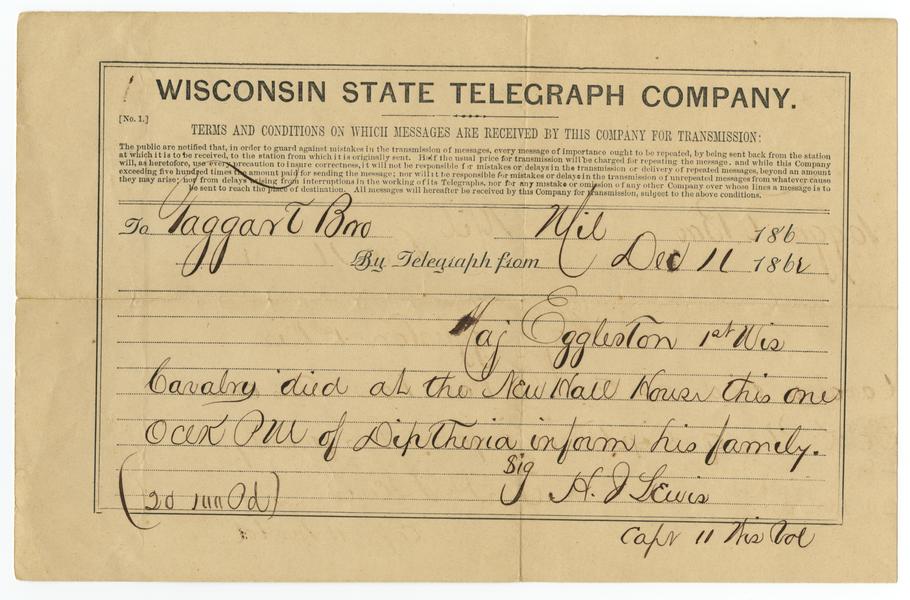 WISCONSIN STATE TELEGRAPH COMPANY.
[No. 1.]
TERMS AND CONDITIONS ON WHICH MESSAGES ARE RECEIVED BY THIS COMPANY FOR TRANSMISSION:
The public are notified that, in order to guard against mistakes in the transmission of messages, every message of importance ought to be repeated, by being sent back from the station
at which it is to be received, to the station from which it is originally sent. Half the usual price for transmission will be charged for repeating the message, and while this Company
will, as heretofore, use every precaution to insure correctness, it will not be responsible for mistakes or delays in the transmission or delivery of repeated messages, beyond an amount
exceeding five hundred times the amount paid for sending the message; nor will it be responsible for mistakes or delays in the transmission of unrepeated messages from whatever cause
they may arise; nor from delays arising from interruptions in the working of its Telegraphs, nor for any mistake or omission of any other Company over whose lines a message is to
be sent to reach the place of destination. All messages will hereafter be received by this Company for transmission, subject to the above conditions.
To Taggart Bro Mil 186
By Telegraph from Dec 11 1862
Maj Eggleston 1st Wis
Cavalry died at the New Hall House this one
Ocek PM of Diptheria inform his family.
Sig H. J Lewis
(20 Pd)
Capt 11 Wis Vol